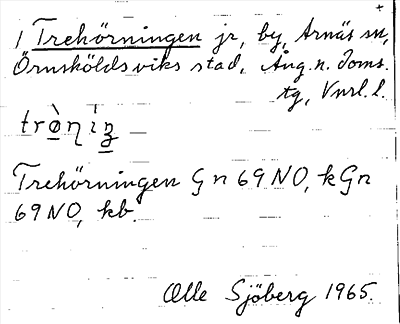 +
1 Trehörningen jr, by, Arnäs sn,
Örnsköldsviks stad, Ång. n. doms.
tg, Vnrl. l.
trò̱ηìṉ
Trehörningen Gn 69 NO, k Gn
69 NO, kb.
Olle Sjöberg 1965.